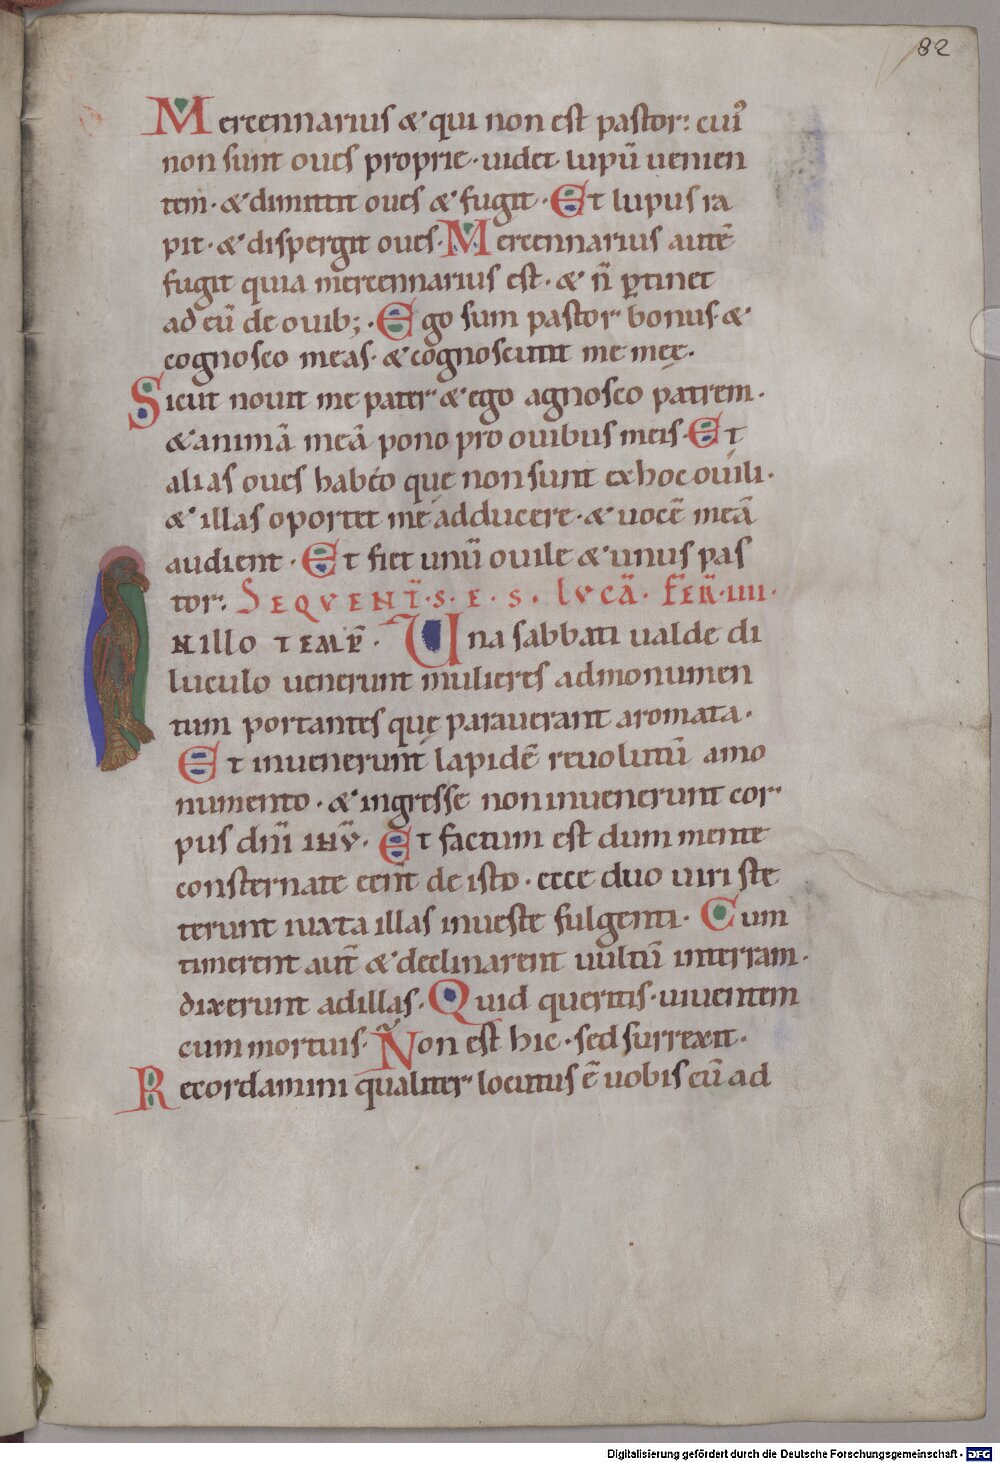 82
Mercennarius & qui non est pastor: cuiꝰ
non sunt oues proprie · uidet lupū uenien
tem · & dimittit oues & fugit · Et lupus ra
pit · & dispergit oues · Mercennarius autē
fugit quia mercennarius est · & n̄ ꝑtinet
ad eū de ouib; · Ego sum pastor bonus · &
cognosco meas · & cognoscunt me meę ·
Sicut nouit me pater & ego agnosco patrem ·
& animā meā pono pro ouibus meis · Et
alias oues habeo quę non sunt ex hoc ouili ·
& illas oportet me adducere · & uocē meā
audient · Et fiet unū ouile & unus pas
tor: SEQVENT̄ · S · E · S · LVCĀ · FER̄ · IIII ·
NILLO TEMP̄ · Una sabbati ualde di
luculo uenerunt mulieres admonumen
tum portantes quę parauerant aromata ·
Et inuenerunt lapidē reuolutū amo
numento · & ingresse non inuenerunt cor
pus dn̄i IHV̄ · Et factum est dum mente
consternate eēnt de isto · ecce duo uiri ste
terunt iuxta illas inueste fulgenti · Cum
timerent aut̄ & declinarent uultū interram ·
dixerunt adillas · Quid queritis · uiuentem
cum mortuis · Non est hic · sed surrexit ·
Recordamini qualiter locutus ē uobis cū ad
Digitalisierung gefördert durch die Deutsche Forschungsgemeinschaft - DFG